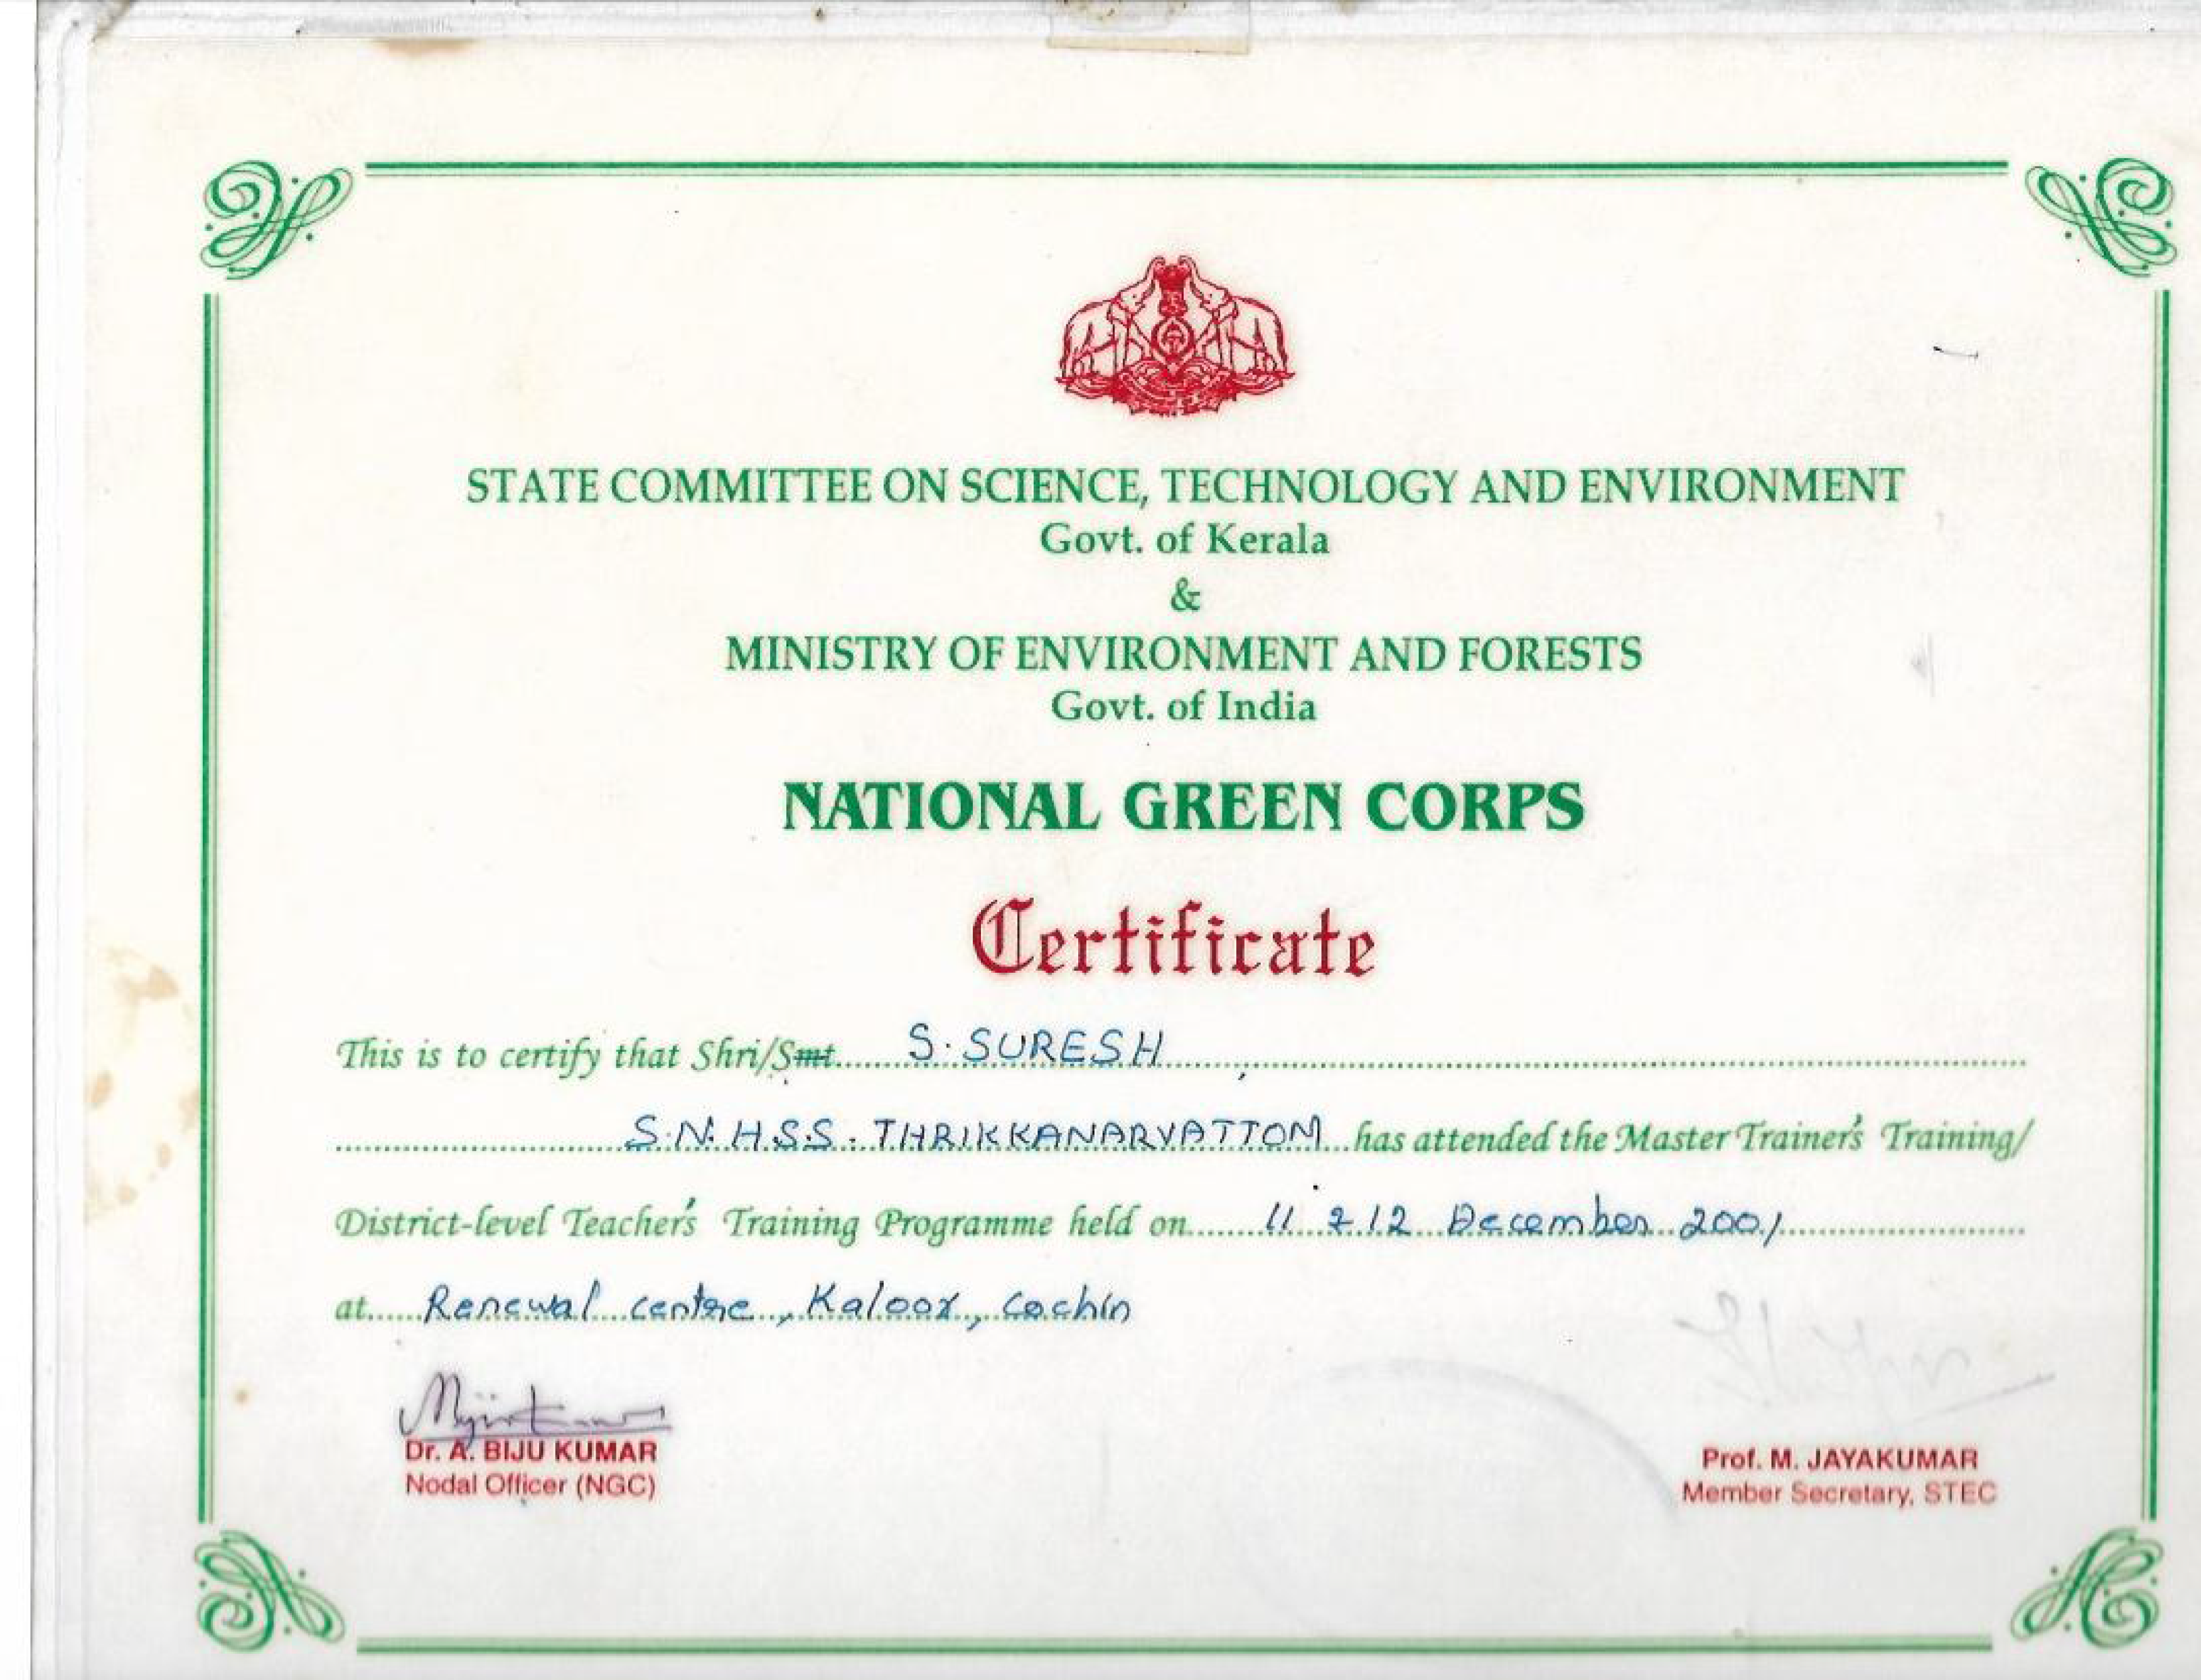 STATE COMMITTEE ON SCIENCE, TECHNOLOGY AND ENVIRONMENT
Govt. of Kerala
&
MINISTRY OF ENVIRONMENT AND FORESTS
Govt. of India
NATIONAL GREEN CORPS
Certificate
This is to certify that Shri/Smt. S. SURESH
S.N.H.S.S. THRIKKANARVATTOM has attended the Master Trainer's Training/
District-level Teacher's Training Programme held on 11 & 12 December 2001
at Renewal centre, Kaloor, Cochin
Dr. A. BIJU KUMAR
Nodal Officer (NGC)
Prof. M. JAYAKUMAR
Member Secretary, STEC